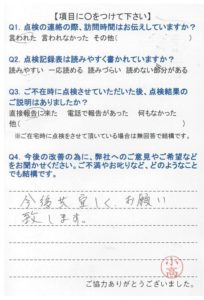 【項目に〇をつけて下さい】
Q1. 点検の連絡の際、訪問時間はお伝えしていますか?
言われた 言われなかった その他( )
Q2. 点検記録表は読みやすく書かれていますか?
読みやすい 一応読める 読みづらい 読めない部分がある
Q3. ご不在時に点検させていただいた後、点検結果の
ご説明はありましたか?
直接報告に来た 電話で報告があった 何もなかった
他( )
※ご在宅時に点検をさせて頂いている場合は無回答で結構です。
Q4. 今後の改善の為に、弊社へのご意見やご希望など
をお聞かせください。ご不満やお叱りなど、どのようなこと
でも結構です。
今後共宜しくお願い
致します。
小高
ご協力ありがとうございました。